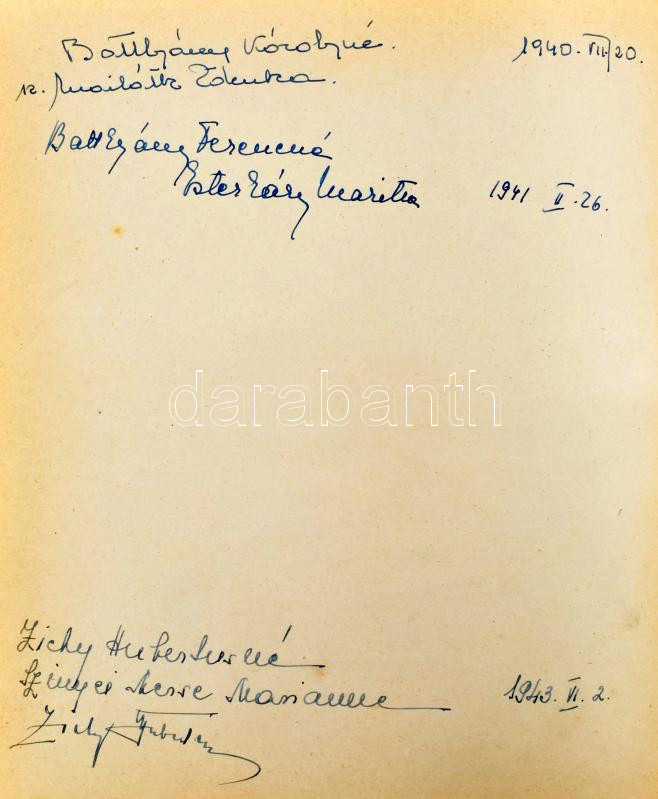 Batthyány Károlyné. 1940. VII/20.
sz. Mailáth Zdenka.
Batthyány Ferencné
Esterházy Maritta 1941 II. 26.
darabanth
Zichy Hubertusné
Szinyei Merse Marianne 1943. VI. 2.
Zichy Hubertus